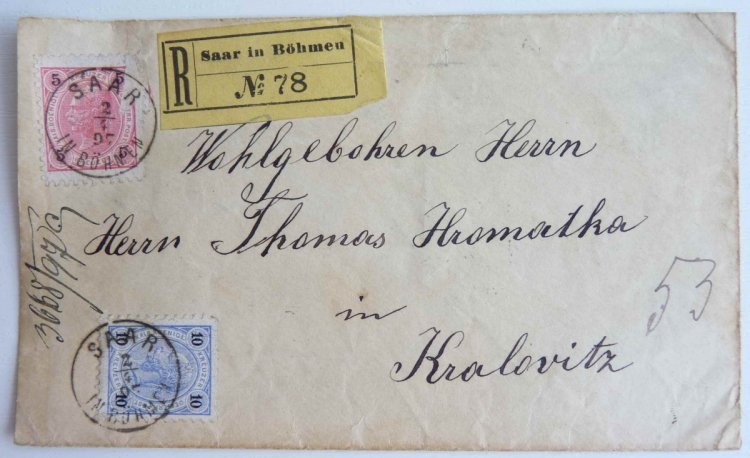 R Saar in Böhmen
№ 78
5 5
SAAR
IN BÖHMEN
Wohlgebohren Herrn
Herrn Thomas Hromatka
in
Kralovitz
53
10 10
10 10
KREUZER
SAAR
IN BÖHMEN